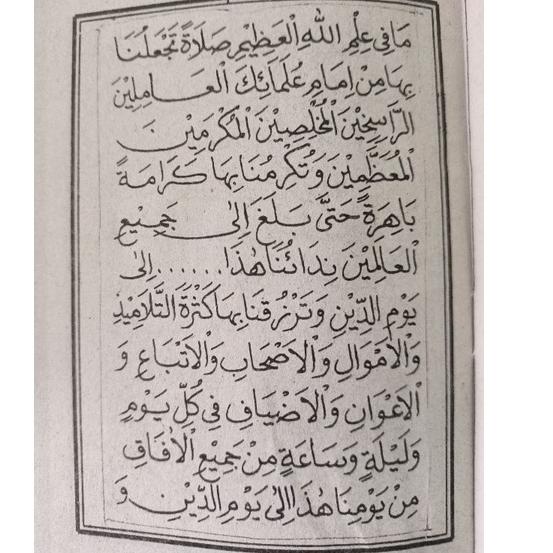 مَا فِى عِلْمِ اللهِ الْعَظِيْمِ صَلَاةً تَجْعَلُنَا
بِهَا مِنْ اِمَامِ عُلَمَائِكَ الْعَـامِلِيْنَ
الرَّاسِخِيْنَ الْمُخْلِصِيْنَ الْمُكْرَمِيْنَ
الْمُعَظَّمِيْنَ وَتُكْرِمُنَا بِهَا كَرَامَةً
بَاهِرَةً حَتَّى بَلَغَ اِلٰى جَمِيْعِ
الْعَالَمِيْنَ نِدَائُنَا هٰذَا.......اِلٰى
يَوْمِ الدِّيْنِ وَتَرْزُقُنَا بِهَا كَثْرَةَ التَّلَامِيْذِ
وَالْاَمْوَالِ وَالْاَصْحَابِ وَالْاَتْبَاعِ وَ
الْاَعْوَانِ وَالْاَضْيَافِ فِى كُلِّ يَوْمٍ
وَلَيْلَةٍ وَسَاعَةٍ مِنْ جَمِيْعِ الْاٰفَاقِ
مِنْ يَوْمِنَا هٰذَا اِلٰى يَوْمِ الدِّيْنِ وَ